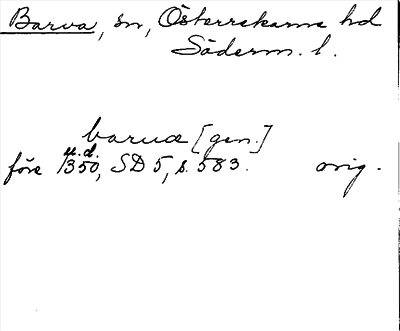 Barva, sn, Österrekarne hd
Söderm. l.
barua [gen.]
u.d.
före 1350, SD 5, s. 583. orig.